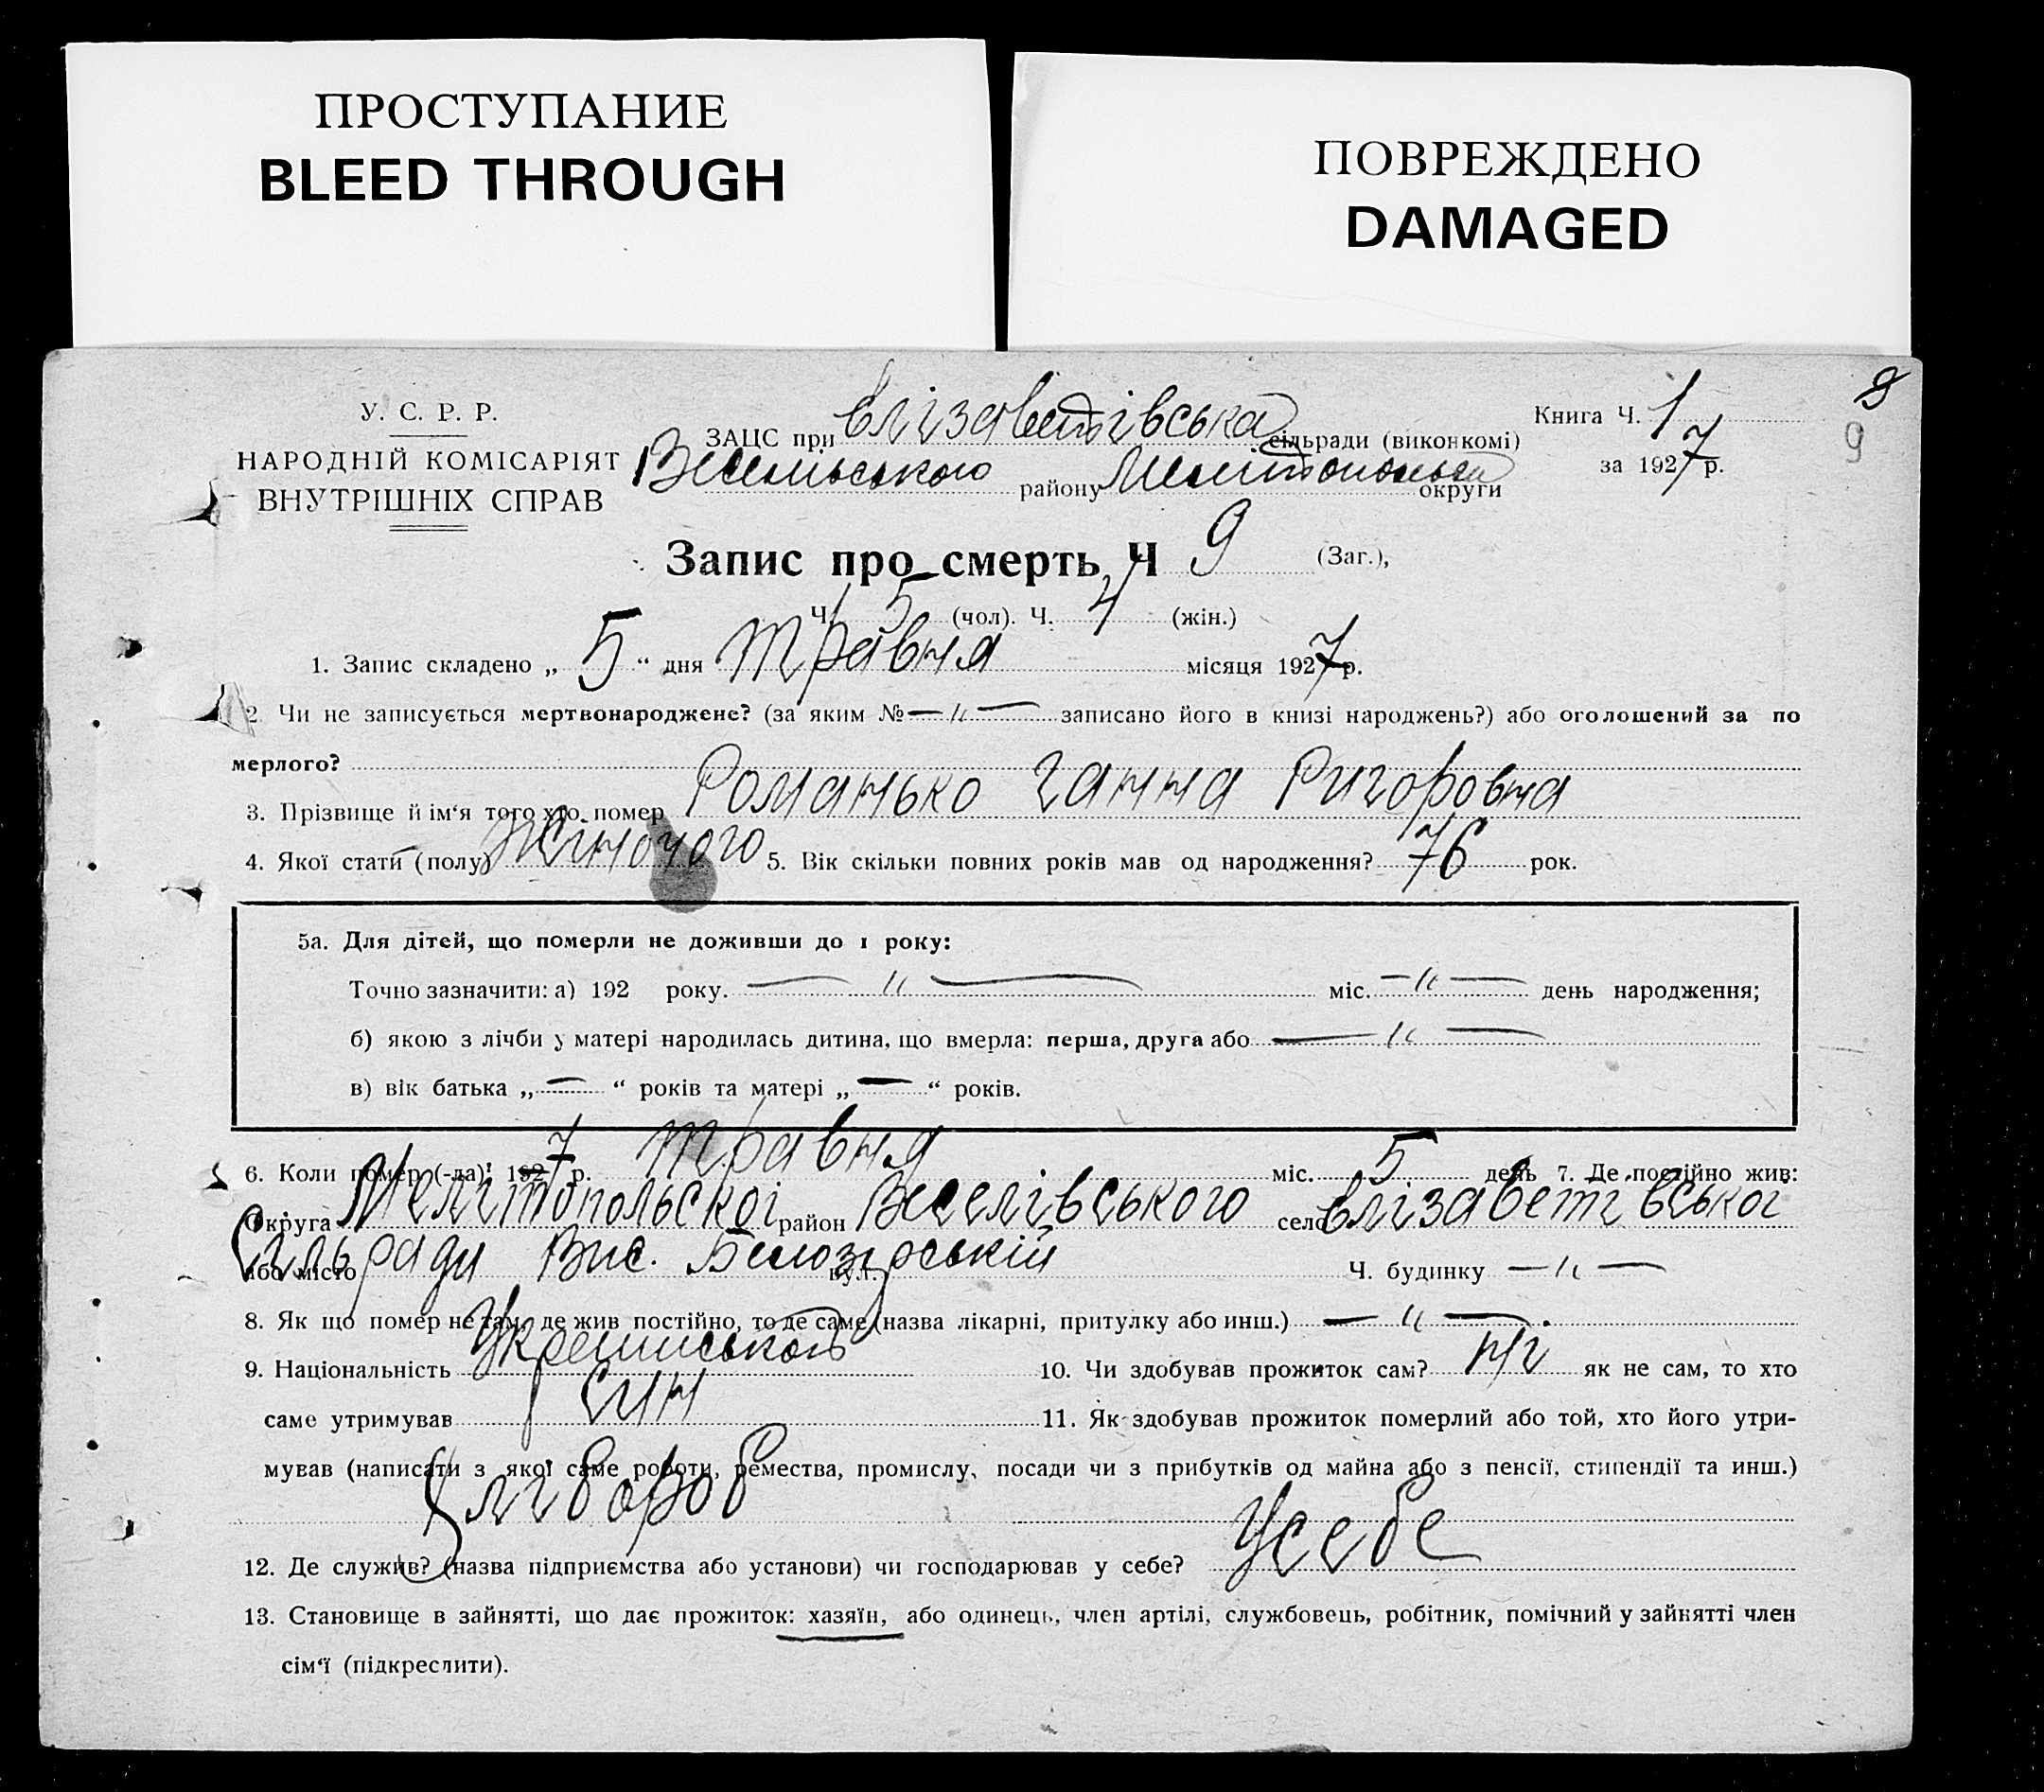 ПРОСТУПАНИЕ
BLEED THROUGH
ПОВРЕЖДЕНО
DAMAGED
У. С. Р. Р.
НАРОДНІЙ КОМІСАРІЯТ
ВНУТРІШНІХ СПРАВ
ЗАЦС при Єлізаветівська сільради (виконкомі)
Веселівського району Мелітопольськ округи
Книга Ч. 1
за 1927 р.
9
Запис про смерть Ч 9 (Заг.),
Ч 5 (чол). Ч. 4 (жін.)
1. Запис складено „ 5 “ дня Травня місяця 1927 р.
2. Чи не записується мертвонароджене? (за яким № — 〃 — записано його в книзі народжень?) або оголошений за по
мерлого?
3. Прізвище й ім‘я того хто помер Романько Ганна Ригоровна
4. Якої статй (полу) Жіночого 5. Вік скільки повних років мав од народження? 76 рок.
5а. Для дітей, що померли не доживши до 1 року:
Точно зазначити: а) 192 року. — 〃 — міс. — 〃 — день народження;
б) якою з лічби у матері народилась дитина, що вмерла: перша, друга або — 〃 —
в) вік батька „ — “ років та матері „ — “ років.
6. Коли помер (-ла): 1927 р. Травня міс. 5 день 7. Де постійно жив:
Округа Мелітопольскоі район Веселівського село Єлізаветівськоі
або місто Сільради Вис. Білозірській вул. Ч. будинку — 〃 —
8. Як що помер не там, де жив постійно, то де саме (назва лікарні, притулку або инш.) — 〃 —
9. Національність 10. Чи здобував прожиток сам? Ні як не сам, то хто
саме утримував Син 11. Як здобував прожиток померлий або той, хто його утри-
мував (написати з якої саме роботи, ремества, промислу, посади чи з прибутків од майна або з пенсії, стипендії та инш.)
Хлівороб
12. Де служив? (назва підприємства або установи) чи господарював у себе? Усебе
13. Становище в зайнятті, що дає прожиток: хазяїн, або одинець, член артілі, службовець, робітник, помічний у зайнятті член
сім‘ї (підкреслити).